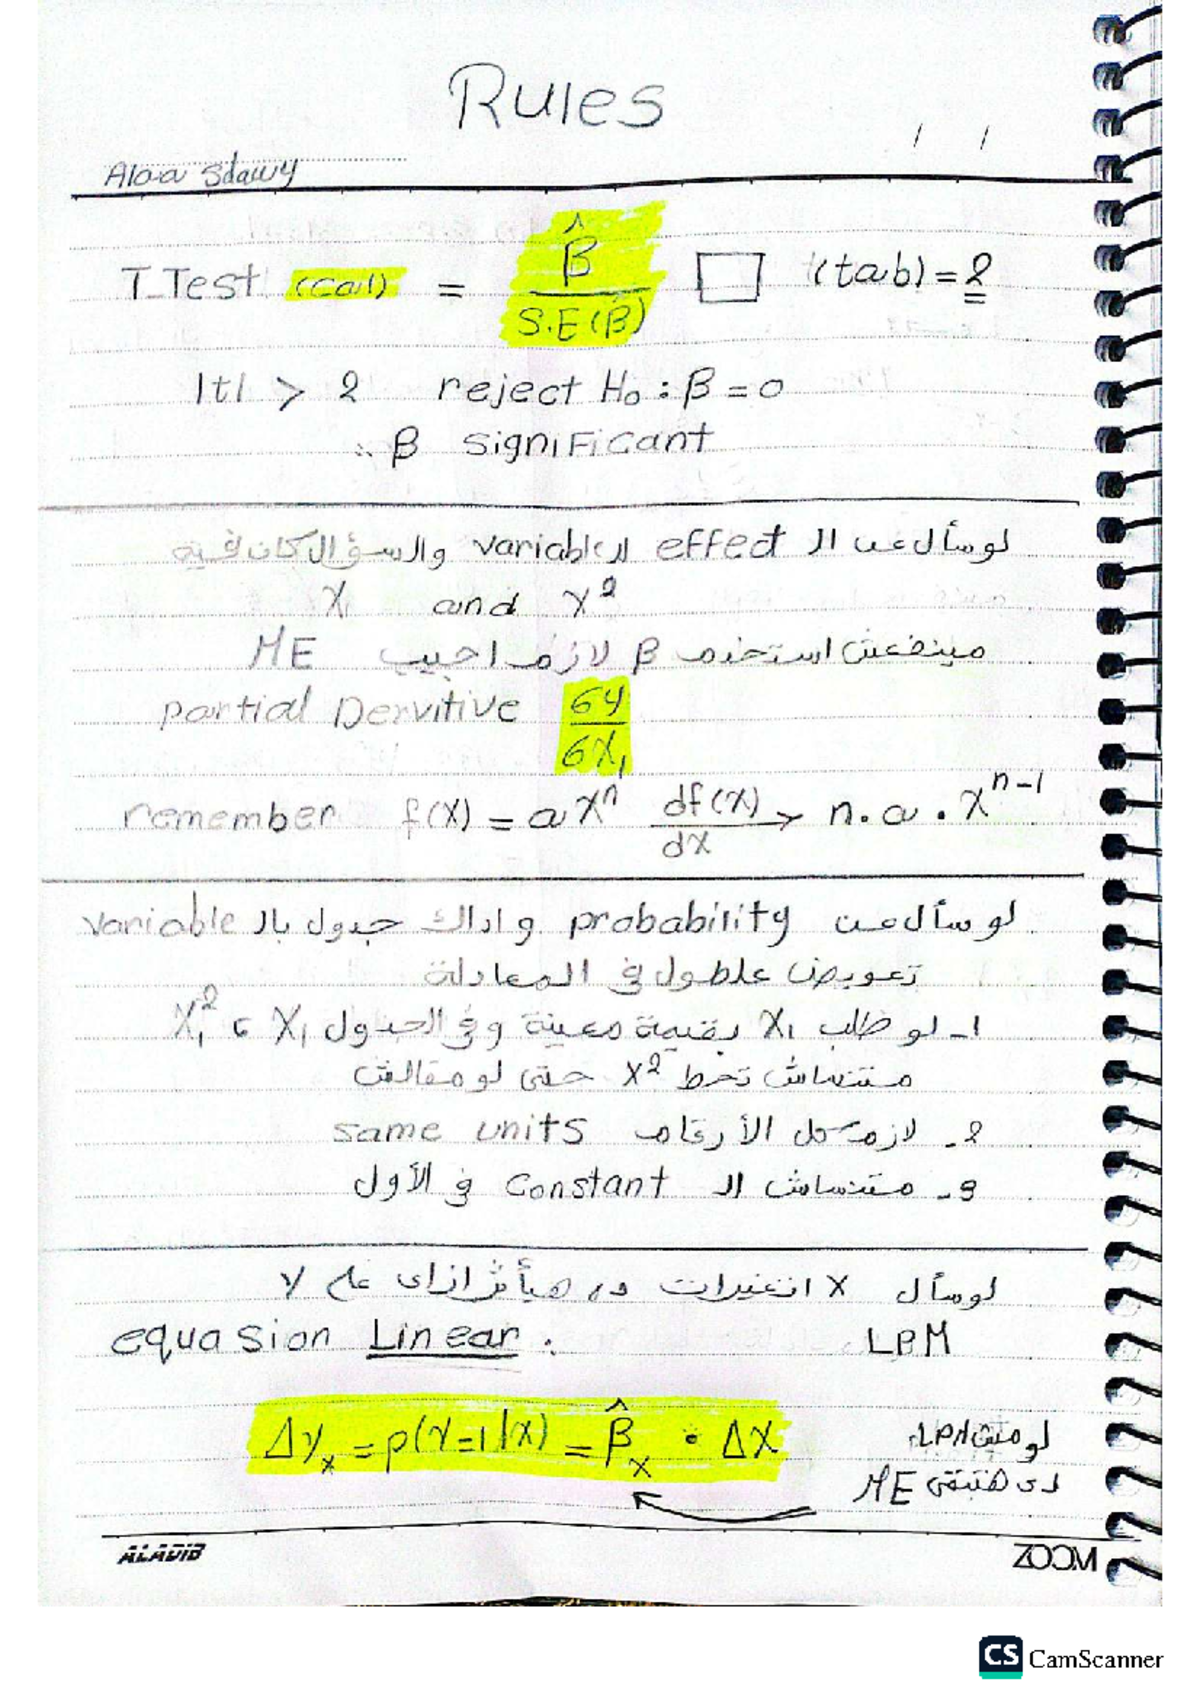 Rules
Alaa Sdawy
T_Test (cal) = β̂ / S.E(β̂) □ (tab) = 2
|t| > 2 reject H₀ : β = 0
∴ β significant
لو سأل عن ال effect لل variable والسؤال كان فيه
X₁ and X²
مينفعش استخدم β لازم اجيب ME
partial Dervitive 6y / 6X₁
remember f(X) = aXⁿ df(X)/dX → n . a . Xⁿ⁻¹
لو سأل عن probability واداك جدول بال variable
تعويض علطول في المعادلة
1- لو طلب X₁ بقيمة معينة وفي الجدول X₁ ، X₁²
متنساش تحط X² حتى لو مقالش
2- لازم كل الأرقام same units
3- متنساش ال constant في الأول
لو سأل X اتغيرات ده هيأثر ازاى على Y
LPM equasion Linear .
Δyₓ = p(Y=1|X) = β̂ₓ . ΔX
لو مش LPM
دى هتبقى ME
ALADIB
ZOOM
CS CamScanner